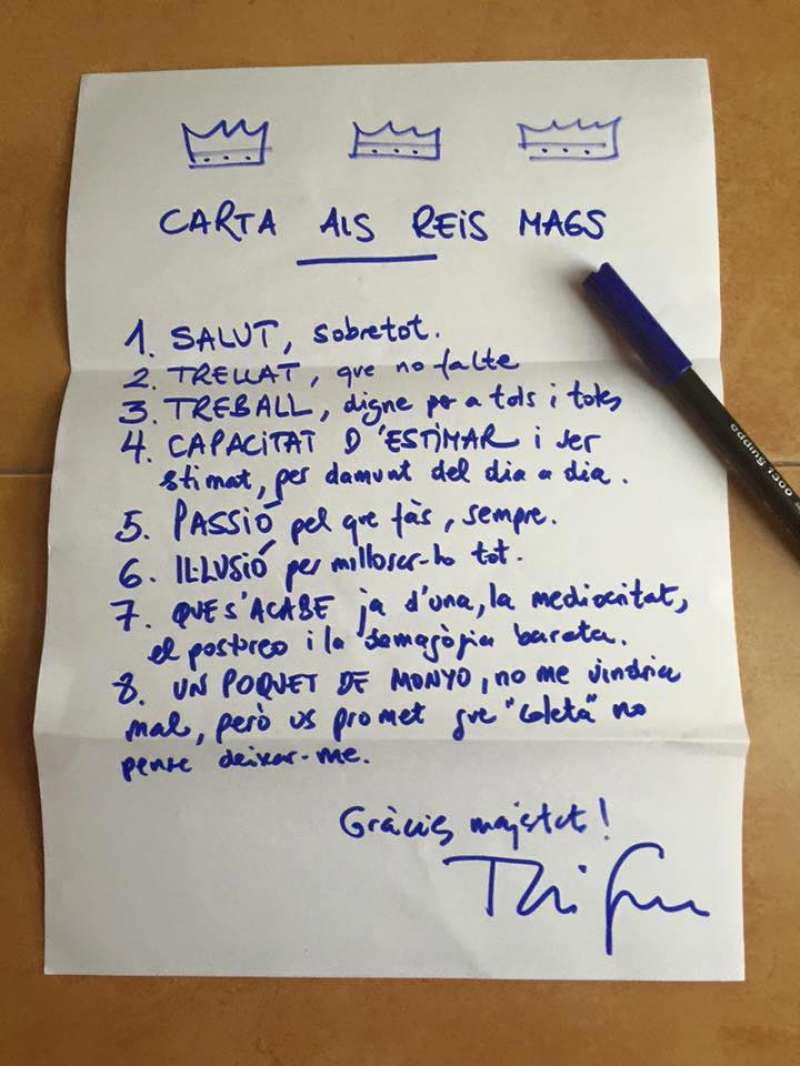 CARTA ALS REIS MAGS
1. SALUT, sobretot.
2. TRELLAT, que no falte
3. TREBALL, digne per a tots i totes
4. CAPACITAT D'ESTIMAR i ser
estimat, per damunt del dia a dia.
5. PASSIÓ pel que fas, sempre.
6. IL·LUSIÓ per millorar-ho tot.
7. QUE S'ACABE ja d'una, la mediocritat,
el postureo i la demagògia barata.
8. UN POQUET DE MONYO, no me vindria
mal, però us promet que "coleta" no
pense deixar-me.
Gràcies majestat!
edding 1300